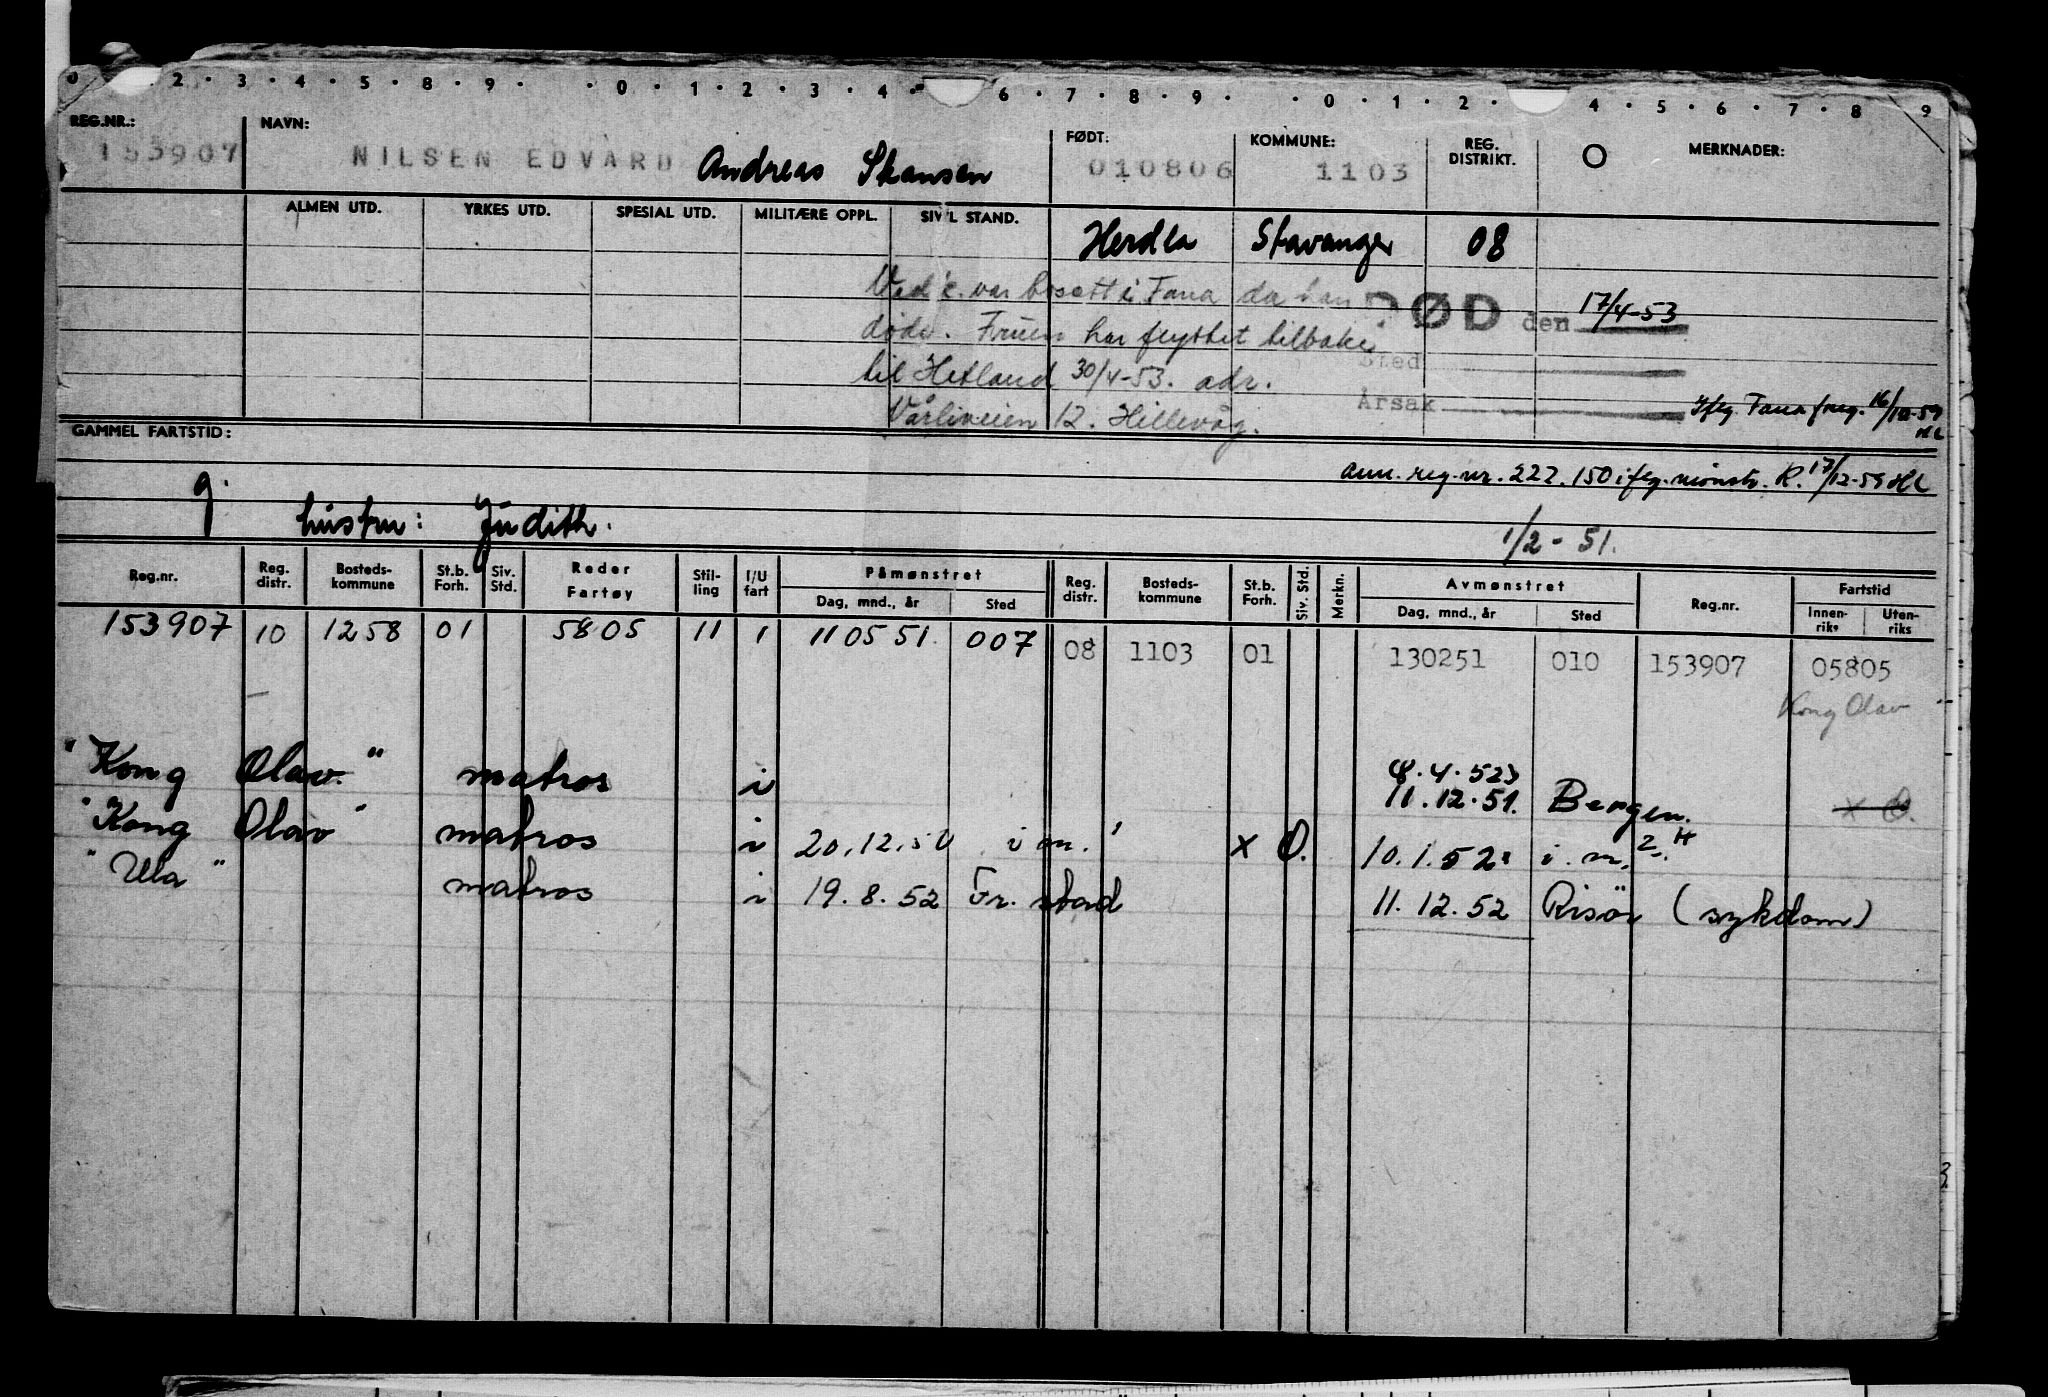 0 2 · 3 · 4 · 5 · 8 · 9 · · 0 · 1 · 2 · 3 · 4 · 6 · 7 · 8 · 9 · · 0 · 1 · 2 · 4 · 5 · 6 · 7 · 8 9
REG.NR.: NAVN: FØDT: KOMMUNE: REG. DISTRIKT. O MERKNADER:
153907 NILSEN EDVARD Andreas Skansen 010806 1103
ALMEN UTD. YRKES UTD. SPESIAL UTD. MILITÆRE OPPL. SIV'L STAND.
Herdla Stavanger 08
Ved k. var bosatt i Fana da han
DØD den 17/4-53
døde. Fruen har flyttet tilbake
Sted
til Hetland 30/4-53. adr.
Årsak
Vårliveien 12. Hillevåg.
Ifg. Fana freg. 16/10-59 HL
GAMMEL FARTSTID:
ann. reg.nr. 227.150 ifg. mønstr. R. 17/12-59 HL
g.
hustru: Judith.
1/2 - 51.
Reg.nr. Reg. distr. Bosteds- kommune St.b. Forh. Siv. Std. Reder Fartøy Stil- ling I/U fart Påmønstret Dag, mnd., år Sted Reg. distr. Bosteds- kommune St.b. Forh. Siv. Std. Merkn. Avmønstret Dag, mnd., år Sted Reg.nr. Fartstid Innen- riks Uten- riks
153907 10 1258 01 5805 11 1 110551. 007 08 1103 01 130251 010 153907 05805
Kong Olav
(8.4.52)
"Kong Olav." matros i 11.12.51. Bergen. x O.
"Kong Olav" matros i 20.12.50 i m. x O. 10.1.52 i. m. 2. H
"Ula" matros i 19.8.52 Fr.stad 11.12.52 Risör (sykdom)